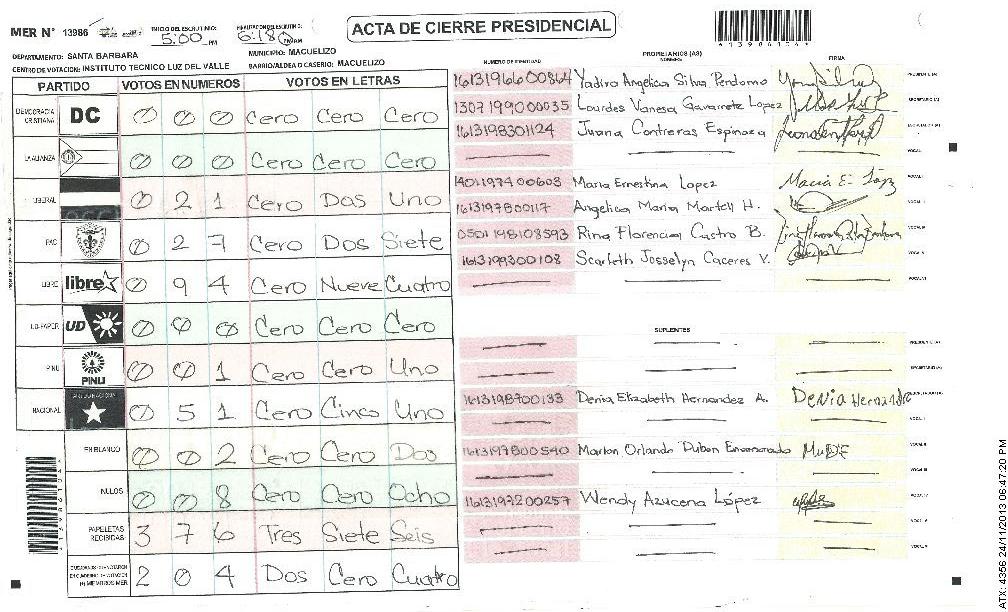 MER N° 13986 INICIO DEL ESCRUTINIO: 5:00 PM 6:18 PM
ACTA DE CIERRE PRESIDENCIAL
DEPARTAMENTO: SANTA BARBARA MUNICIPIO: MACUELIZO
CENTRO DE VOTACION: INSTITUTO TECNICO LUZ DEL VALLE BARRIO/ALDEA O CASERIO: MACUELIZO
PARTIDO VOTOS EN NUMEROS VOTOS EN LETRAS
DEMOCRACIA CRISTIANA DC 0 0 0 Cero Cero Cero
LA ALIANZA 0 0 0 Cero Cero Cero
LIBERAL 0 2 1 Cero Dos Uno
PAC 0 2 7 Cero Dos Siete
LIBRE libre 0 9 4 Cero Nueve Cuatro
UD-FAPER UD 0 0 0 Cero Cero Cero
PINU PINU 0 0 1 Cero Cero Uno
NACIONAL 0 5 1 Cero Cinco Uno
EN BLANCO 0 0 2 Cero Cero Dos
NULOS 0 0 8 Cero Cero Ocho
PAPELETAS RECIBIDAS: 3 7 6 Tres Siete Seis
2 0 4 Dos Cero Cuatro
NUMERO DE IDENTIDAD PROPIETARIOS (AS) NOMBRE FIRMA
1613196600864 Yadira Angelica Silva Perdomo PRESIDENTE (A)
1307199000035 Lourdes Vanesa Gavarrete Lopez SECRETARIO (A)
1613198301124 Juana Contreras Espinoza ESCRUTADOR (A)
VOCAL I
1401197400603 Maria Ernestina Lopez Maria E. López VOCAL II
1613197800117 Angelica Maria Martell H. VOCAL III
0501198108593 Rina Florencia Castro B. VOCAL IV
1613199300108 Scarleth Josselyn Caceres V. VOCAL V
VOCAL VI
SUPLENTES
PRESIDENTE (A)
SECRETARIO (A)
1613198700133 Denia Elizabeth Hernandez A. Denia Hernandez
VOCAL I
1613197800540 Marlon Orlando Dubon Enamorado VOCAL II
VOCAL III
1613197200257 Wendy Azucena López VOCAL IV
VOCAL V
VOCAL VI
ATX: 4356 24/11/2013 06:47:20 PM